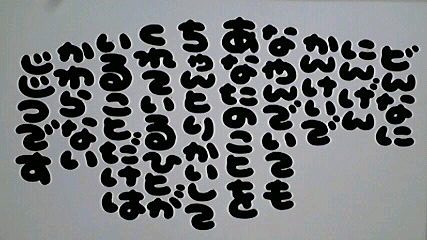 どんなに
にんげん
かんけいで
なやんでいても
あなたのことを
ちゃんとりかいして
くれているひとが
いることだけは
かわらない
じじつです